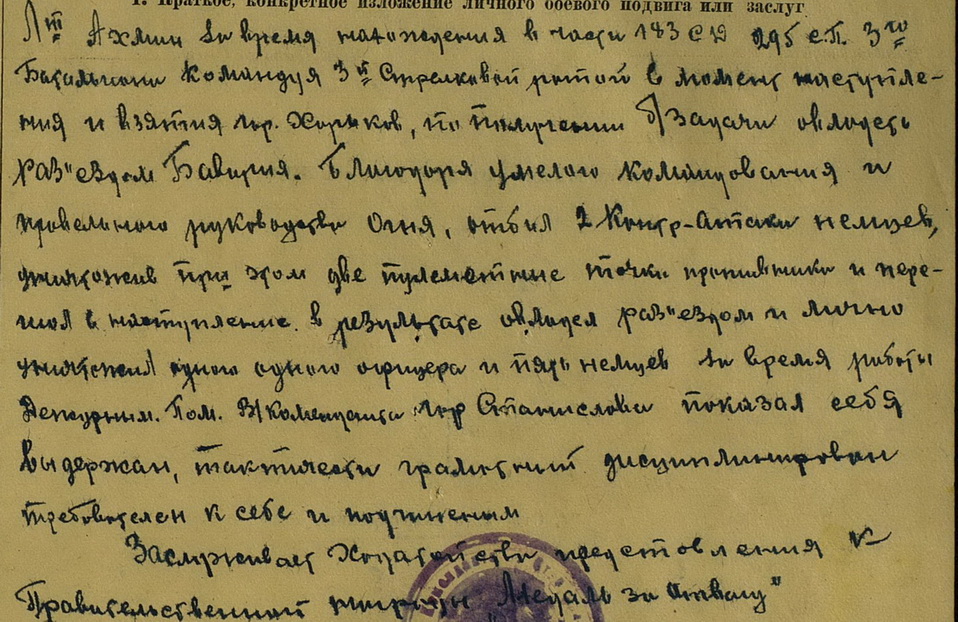 1. Краткое, конкретное изложение личного боевого подвига или заслуг
Л-т Ахмин во время нахождения в части 183 СД 295 с.п. 3го
Батальона командуя 3й Стрелковой ротой в момент наступле-
ния и взятия гор. Харьков, по получении б/задачи овладеть
раз"ездом Бавария. Благодаря умелого командования и
правельного руководства огня, отбил 2 контр-атаки немцев,
уничтожив при этом две пулеметные точки противника и пере-
шол в наступление. в результате овладел раз"ездом и лично
уничтожил одного одного офицера и пять немцев во время работы
Дежурным. Пом. В/Коменданта гор Станислава показал себя
выдержан, тактически грамотный дисциплинирован
требователен к себе и подчиненым
Заслуживает Ходатайство представления к
Правительственной награды "Медаль за Отвагу"